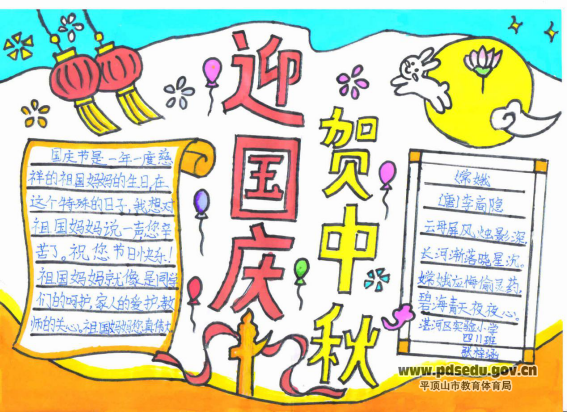 迎国庆
贺中秋
国庆节是一年一度慈
祥的祖国妈妈的生日,在
这个特殊的日子,我想对
祖国妈妈说一声您辛
苦了。祝您节日快乐!
祖国妈妈就像是同学
们的呵护,家人的爱护,教
师的关心。祖国妈妈您真伟大
嫦娥
(唐)李商隐
云母屏风烛影深,
长河渐落晓星沉。
嫦娥应悔偷灵药,
碧海青天夜夜心。
湛河区实验小学
四川班
www.pdsedu.gov.cn
平顶山市教育体育局